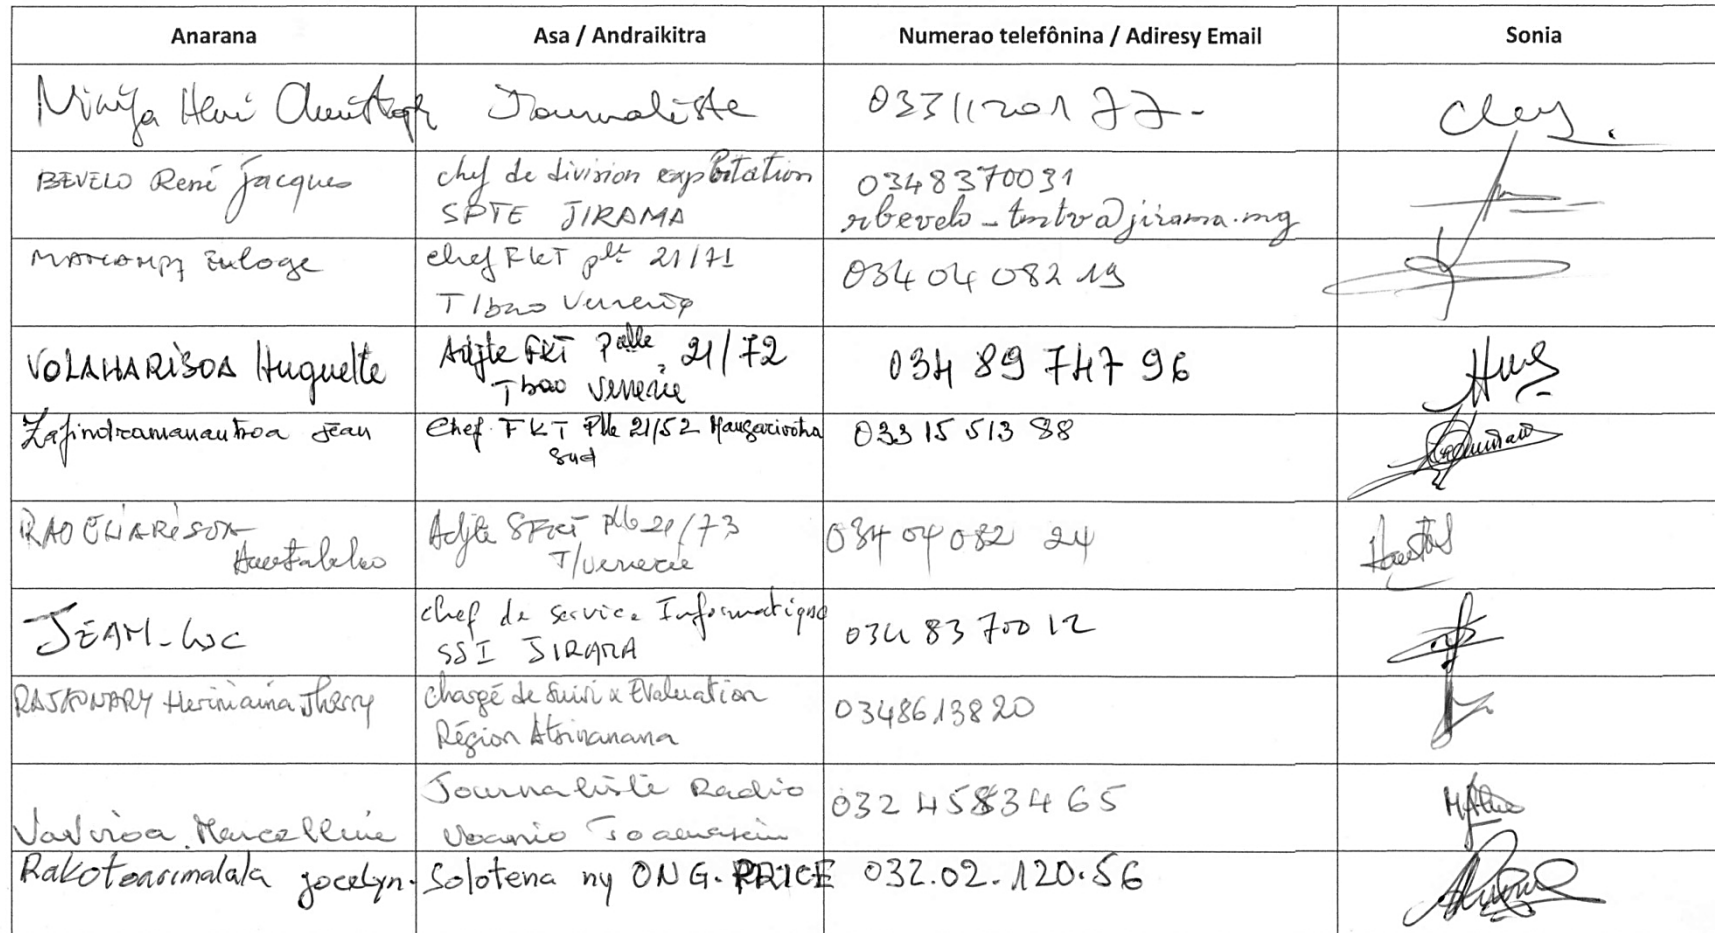 Anarana
Asa / Andraikitra
Numerao telefônina / Adiresy Email
Sonia
Henri
Journaliste
BEVELO René Jacques
chef de division exploitation
SPTE JIRAMA
0348370031
rbevelo-tmtv@jirama.mg
Euloge
chef FKT plt 21/71
T/bao Verrerie
034 04 082 19
VOLAHARISOA Huguette
Adjte FKT Palle 21/72
Tbao Verrerie
034 89 747 96
Zafindramanantsoa Jean
Chef FKT Plle 21/52 Mangarivotra
Sud
033 15 513 88
Adjte 21/73
T/Verrerie
034 04 082 24
JEAN-Luc
chef de service Informatique
SSI JIRAMA
034 83 700 12
Heriniaina Thierry
chargé de Suivi & Evaluation
Région Atsinanana
0348613820
Journaliste Radio
032 45834 65
Marcelline
Rakotoarimalala jocelyn.
Solotena ny ONG. PRICE
032.02.120.56